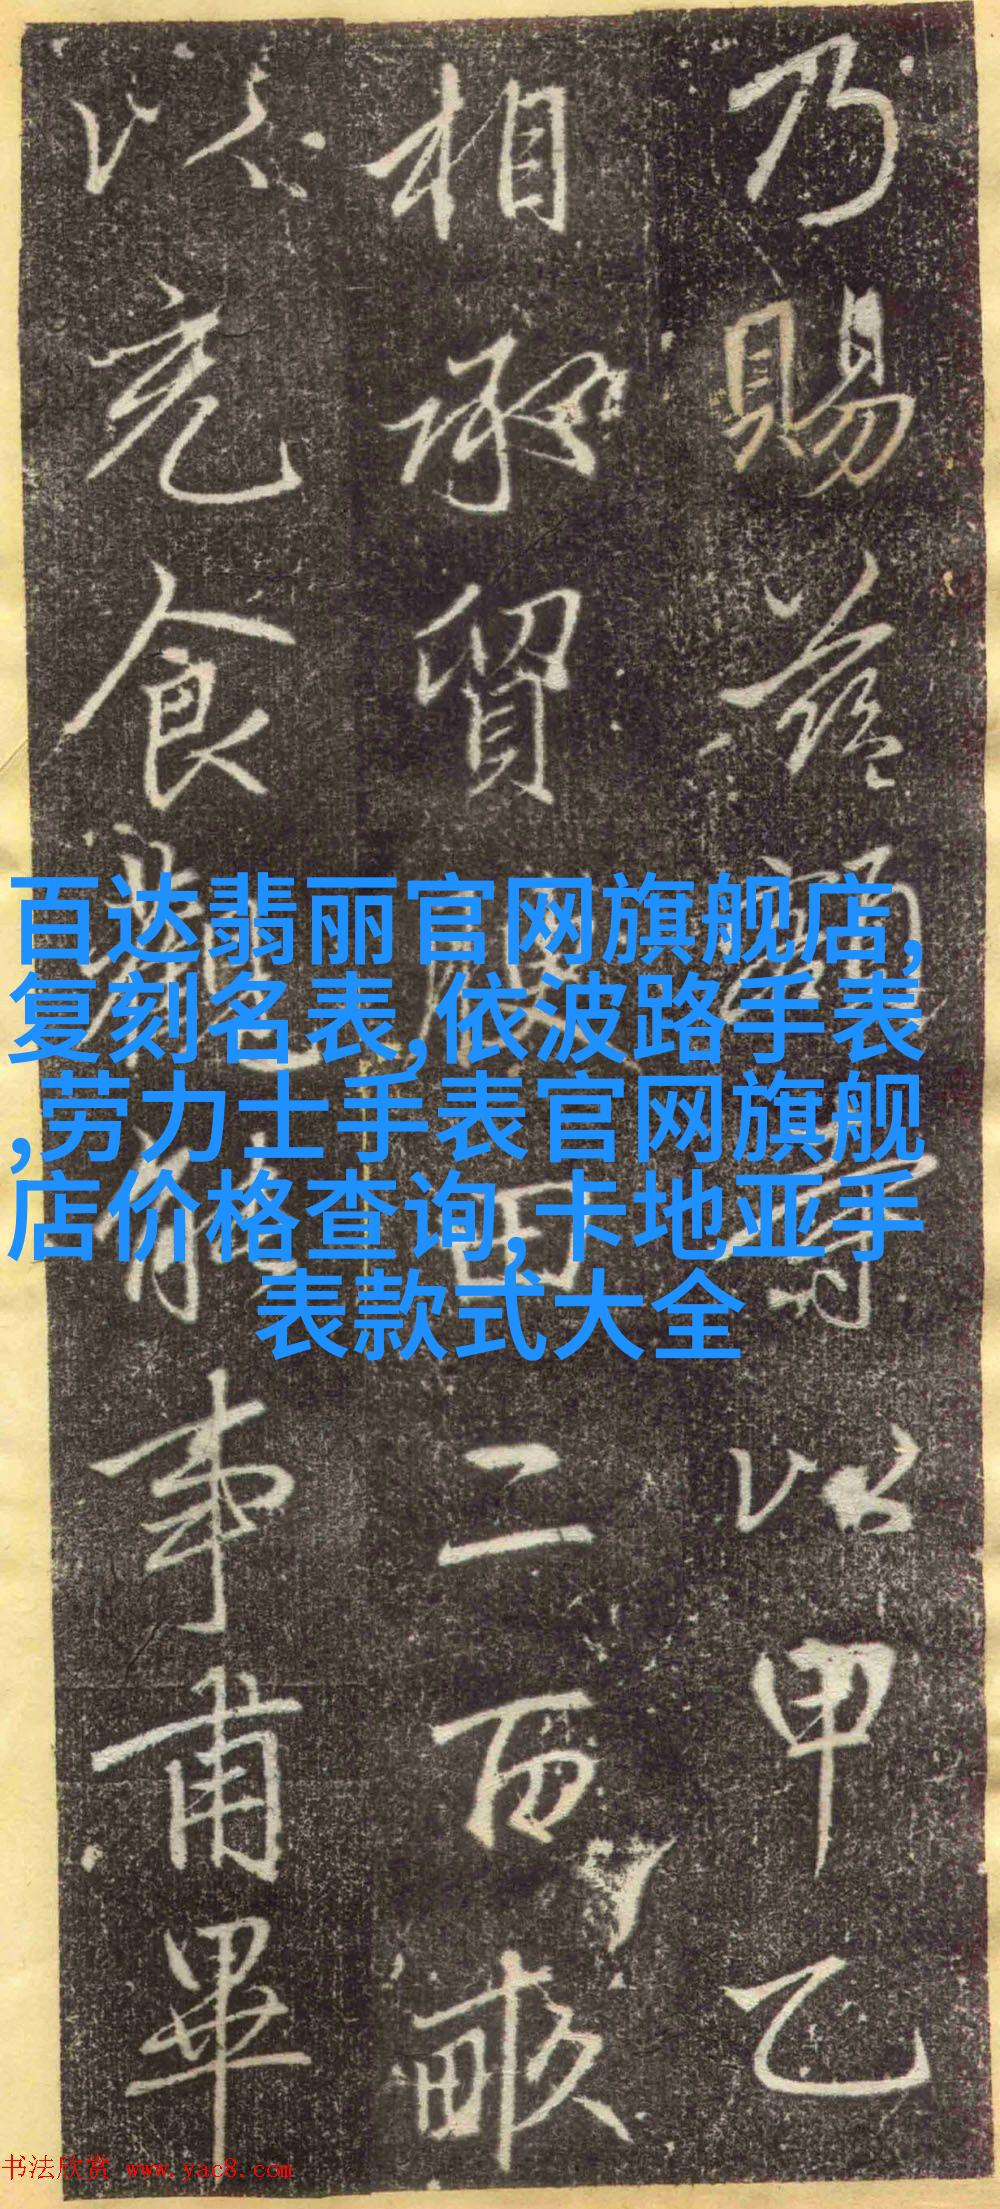 乃賜益額寺以甲乙
相承貿腴田二百畝
以充食輪能事甫畢
百达翡丽官网旗舰店,
复刻名表,依波路手表
,劳力士手表官网旗舰
店价格查询,卡地亚手
表款式大全
书法欣赏 www.yac8.com